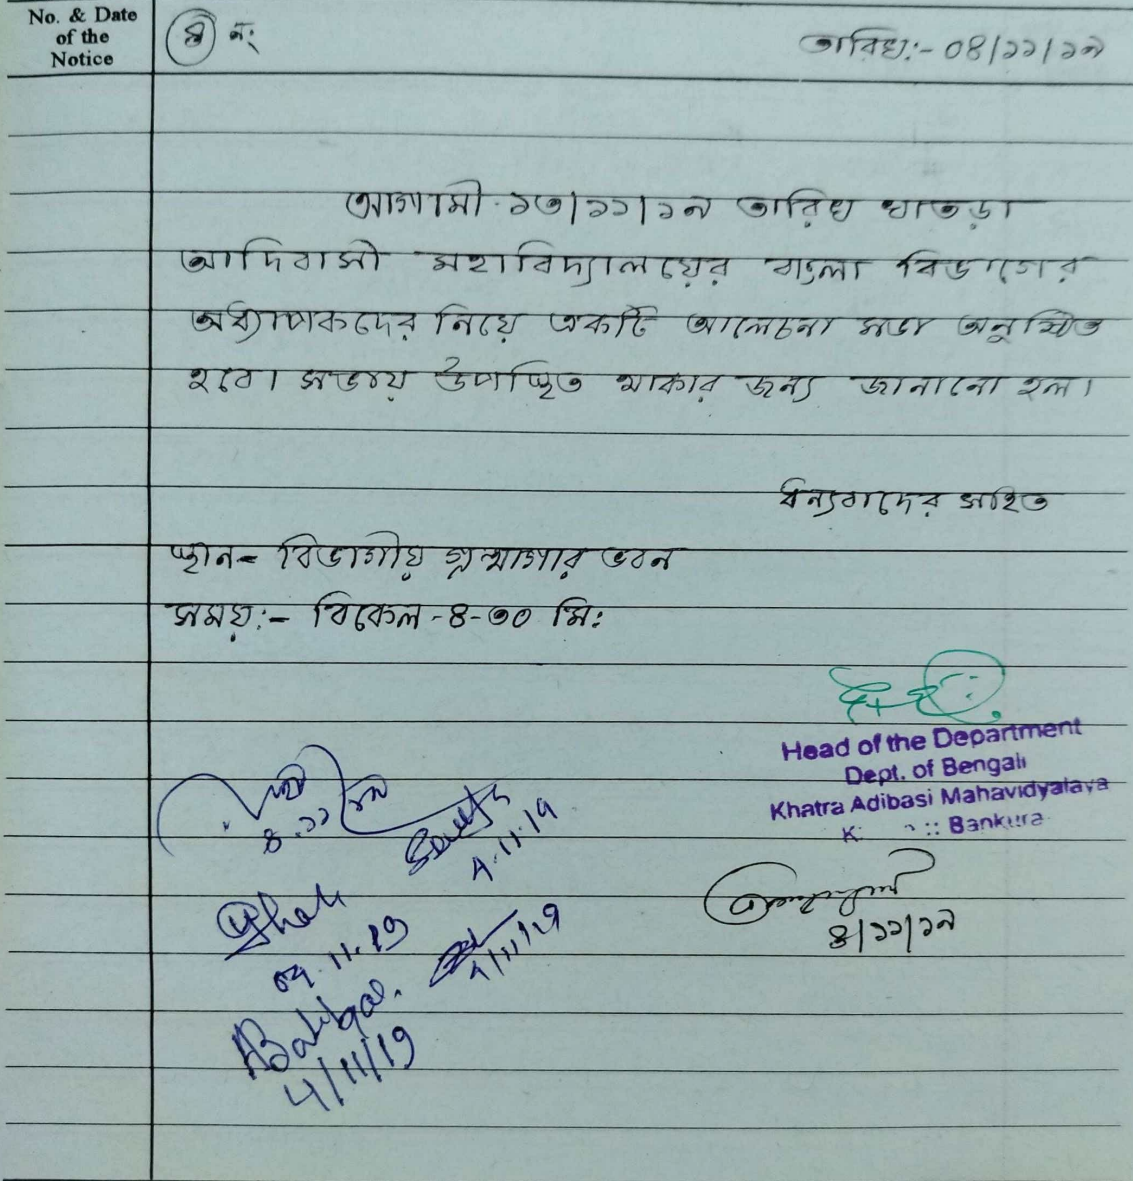 No. & Date
of the
Notice
৪ নং
তারিখ:- ০৪/১১/১৯
আগামী ১৩/১১/১৯ তারিখ খাতড়া
আদিবাসী মহাবিদ্যালয়ের বাংলা বিভাগের
অধ্যাপকদের নিয়ে একটি আলেচনা সভা অনুষ্ঠিত
হবে। সভায় উপস্থিত থাকার জন্য জানানো হল।
ধন্যবাদের সহিত
স্থান- বিভাগীয় গ্রন্থাগার ভবন
সময়:- বিকেল -৪-৩০ মি:
Head of the Department
Dept. of Bengali
Khatra Adibasi Mahavidyalaya
Bankura
৪.১১.১৯
4.11.19
৪/১১/১৯
04.11.19
4/11/19
4/11/19